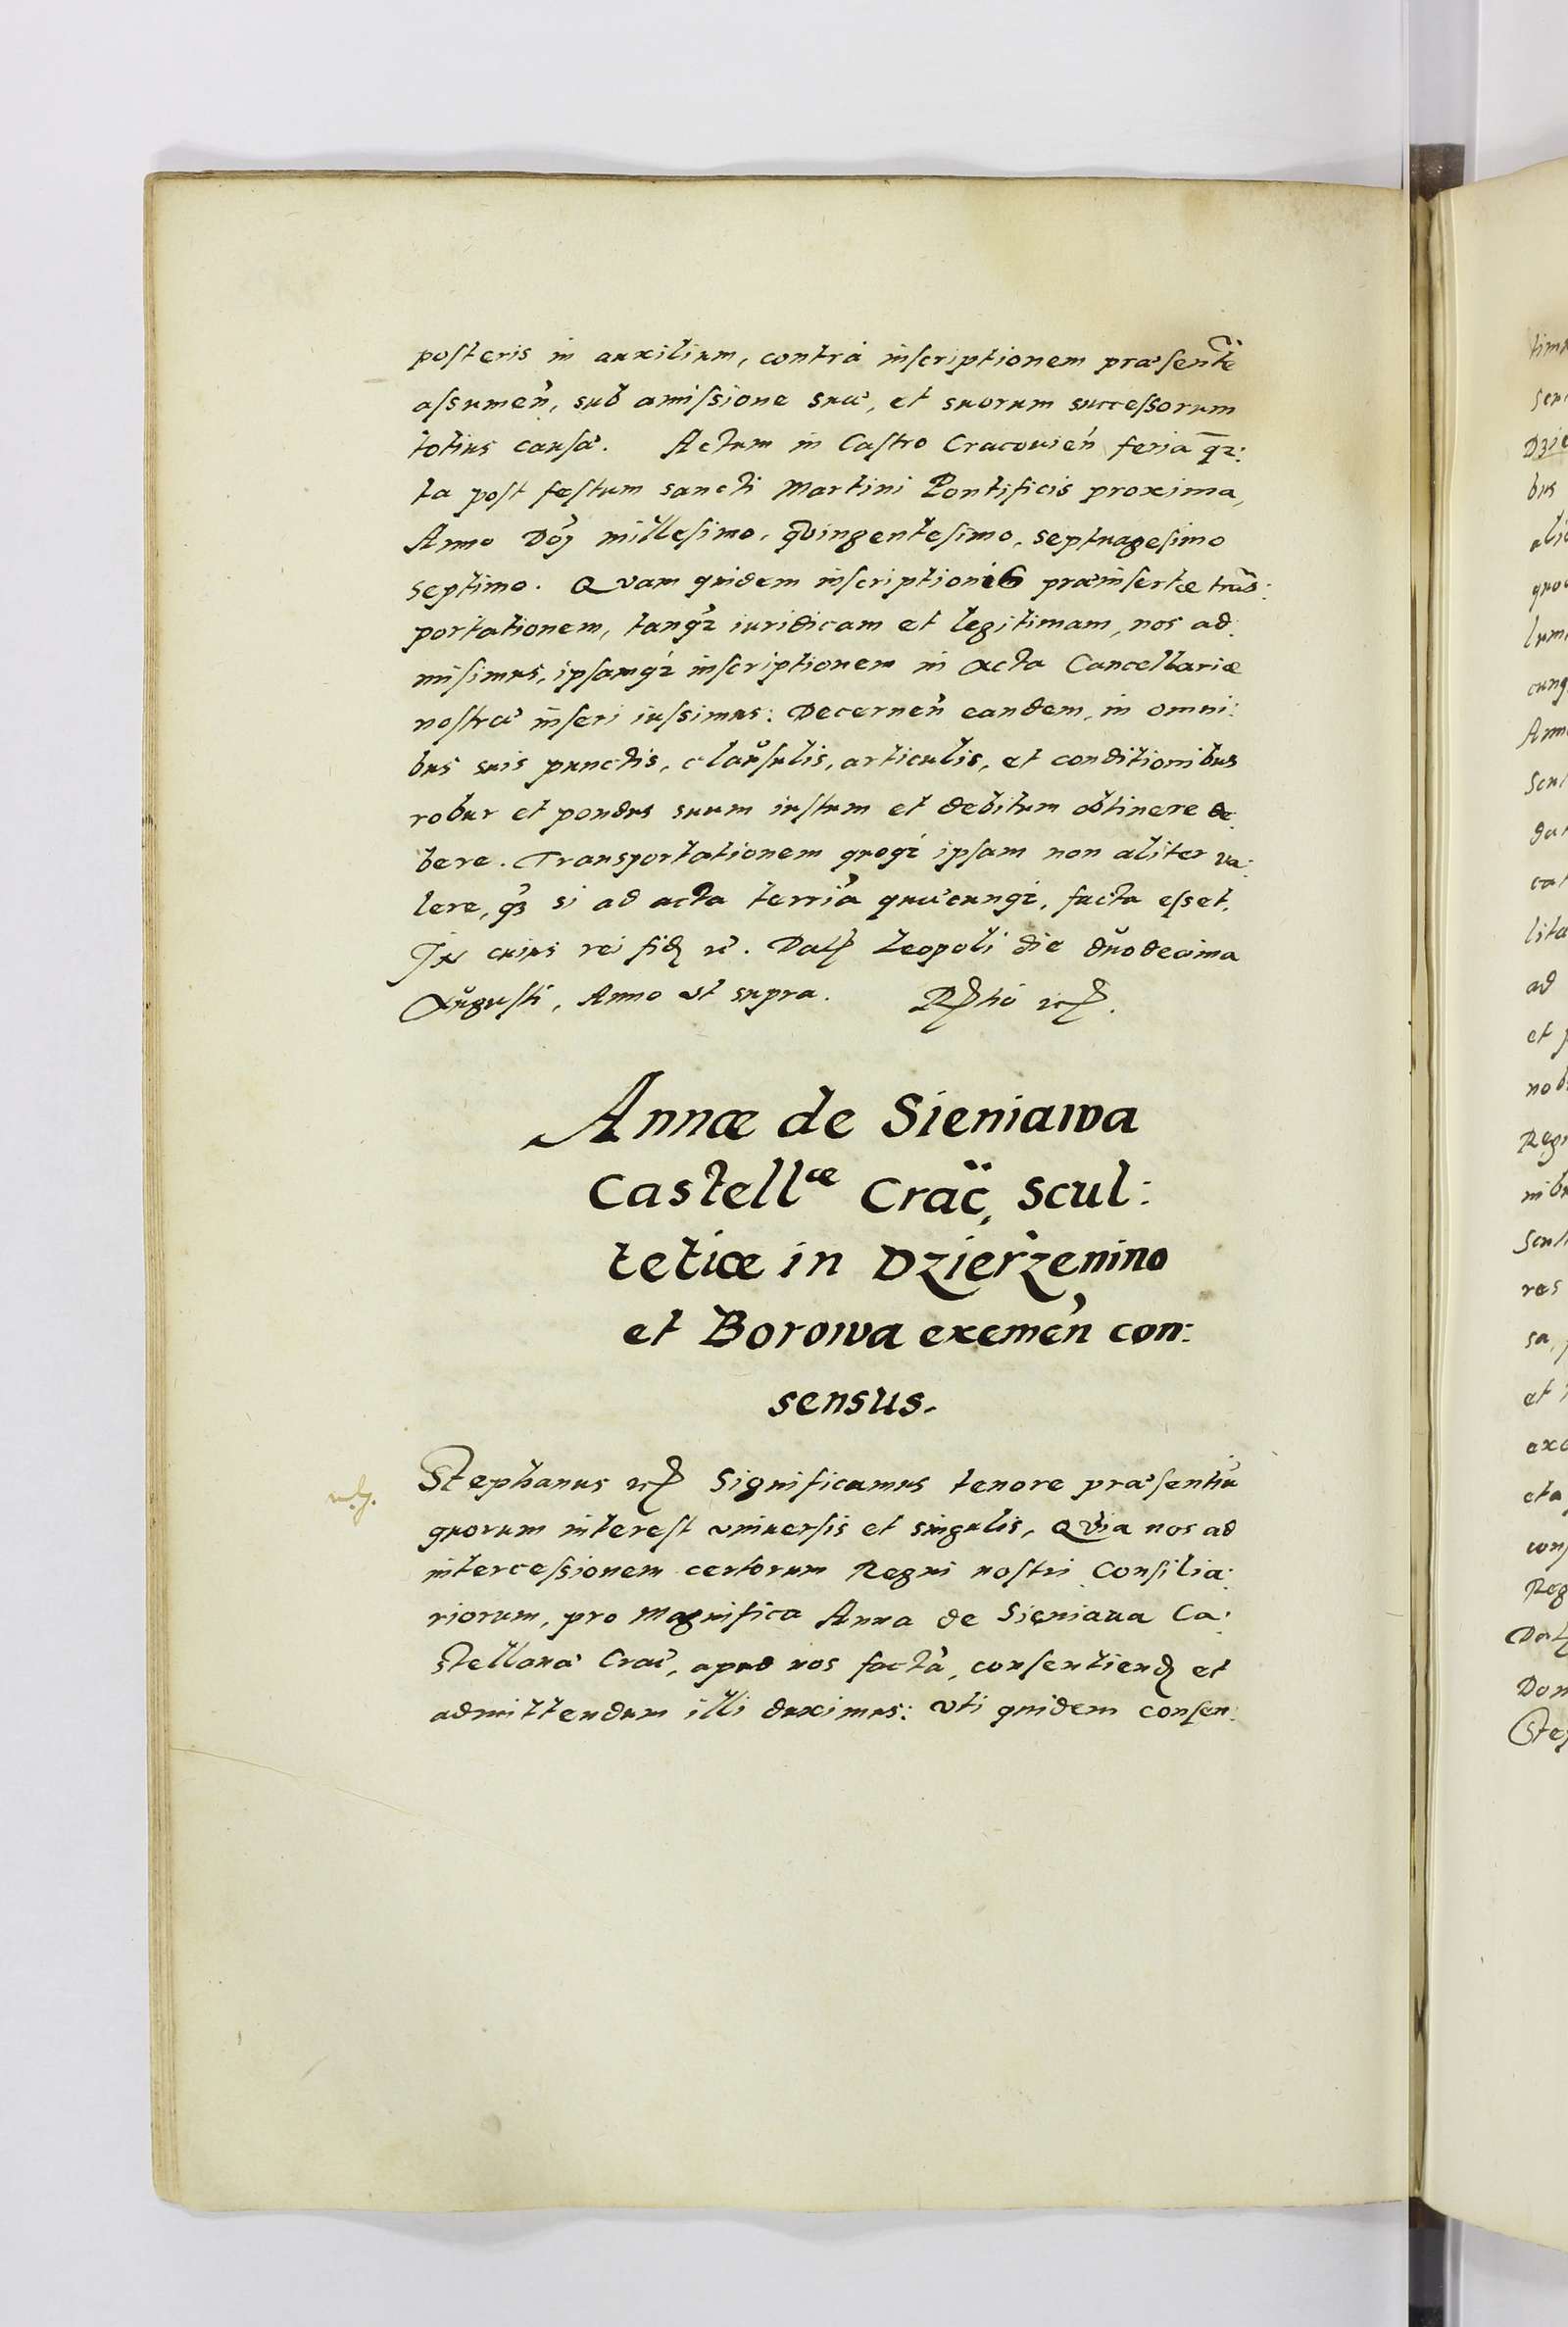 posteris in auxilium, contrà inscriptionem præsentẽ
assumeñ, sub amissione suæ, et suorum successorum
totius causæ. Actum in Castro Cracovieñ feria qr̄:
ta post festum sancti Martini Pontificis proxima,
Anno Doj millesimo, quingentesimo, septuagesimo
septimo. Quam quidem inscriptionis præinsertæ trãs:
portationem, tanqz iuridicam et legitimam, nos ad:
misimus, ipsamqz inscriptionem in acta Cancellariæ
nostræ inseri iussimus: Decerneñ eandem, in omni:
bus suis punctis, clausulis, articulis, et conditionibus
robur et pondus suum iustum et debitum obtinere de:
bere. Transportationem quoqz ipsam non aliter va:
lere, qz si ad acta terría quæcunqz, facta esset.
In cuius rei fid etc. Dat Leopoli die duodecima
Augusti, Anno ut supra. Rtio etc.
Annæ de Sieniawa
Castellæ Crac̈, scul:
tetiæ in Dzierżenino
et Borowa exemeñ con:
sensus.
Stephanus etc Significamus tenore præsentiũ
quorum interest universis et singulis, Quia nos ad
intercessionem certorum Regni nostri Consilia:
riorum, pro Magnifica Anna de Sieniaua Ca:
stellana Crac̃, apud nos factã, consentiend et
admittendum illi duximus: Uti quidem consen:
tima
Dzie
bus
quo
lum
cunq
Ann
lita
ad
et
nob
Regn
res
sa,
et
cta
Reg
Dat
Don
Ste